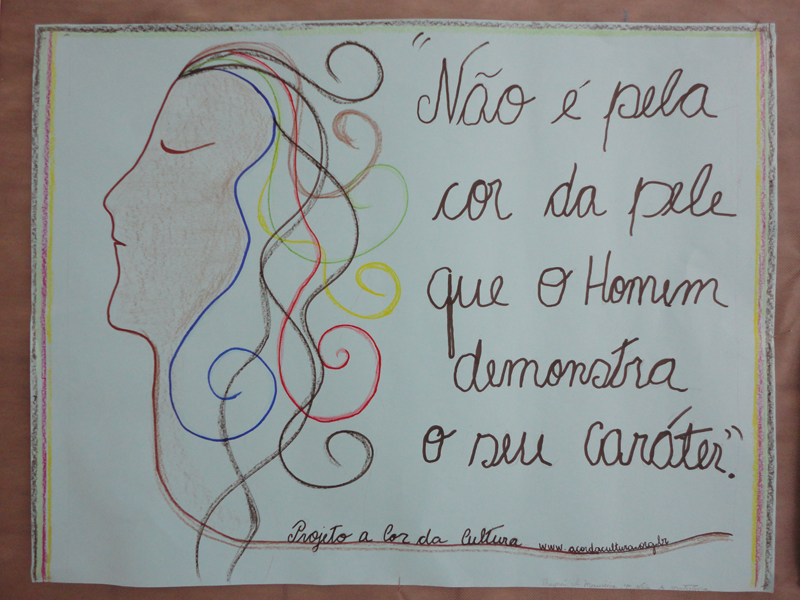 "Não é pela
cor da pele
que o Homem
demonstra
o seu caráter".
Projito a Cor da Cultura www.acordacultura.org.br